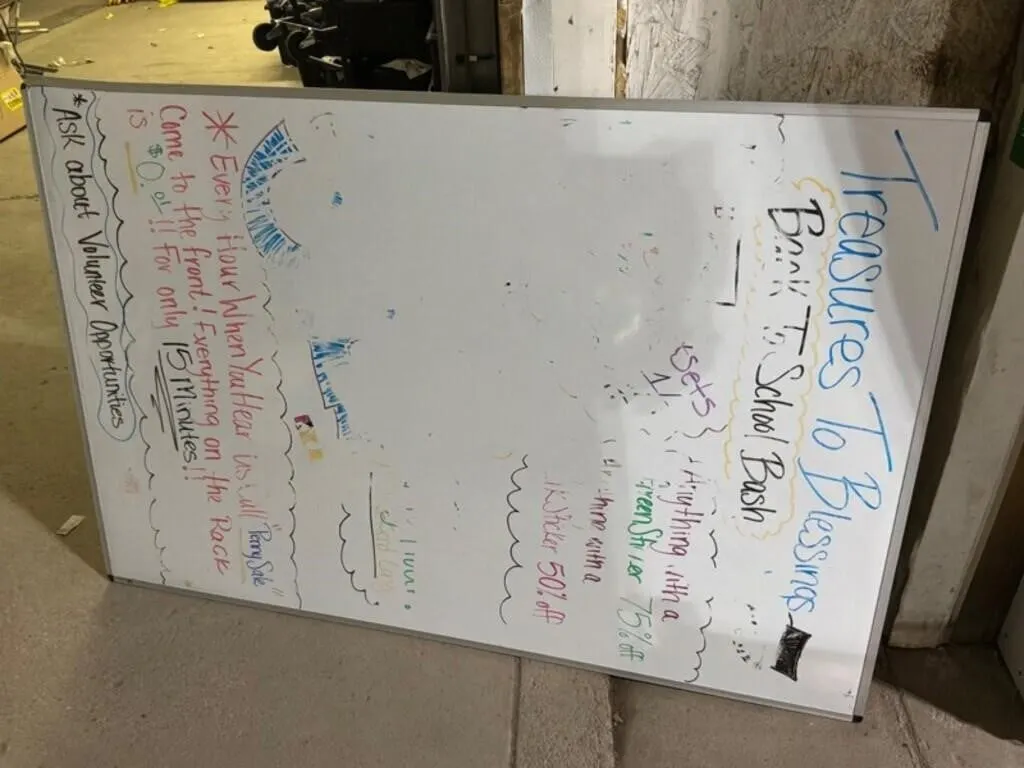 Treasures To Blessings
Back To School Bash
Sets
1
Anything with a
Green Sticker 75% off
with a
Sticker 50% off
* Every Hour When You Hear us call "Penny Sale"
Come to the front! Everything on the Rack
is $0.01!! For only 15 Minutes!!
* Ask about Volunteer Opportunities